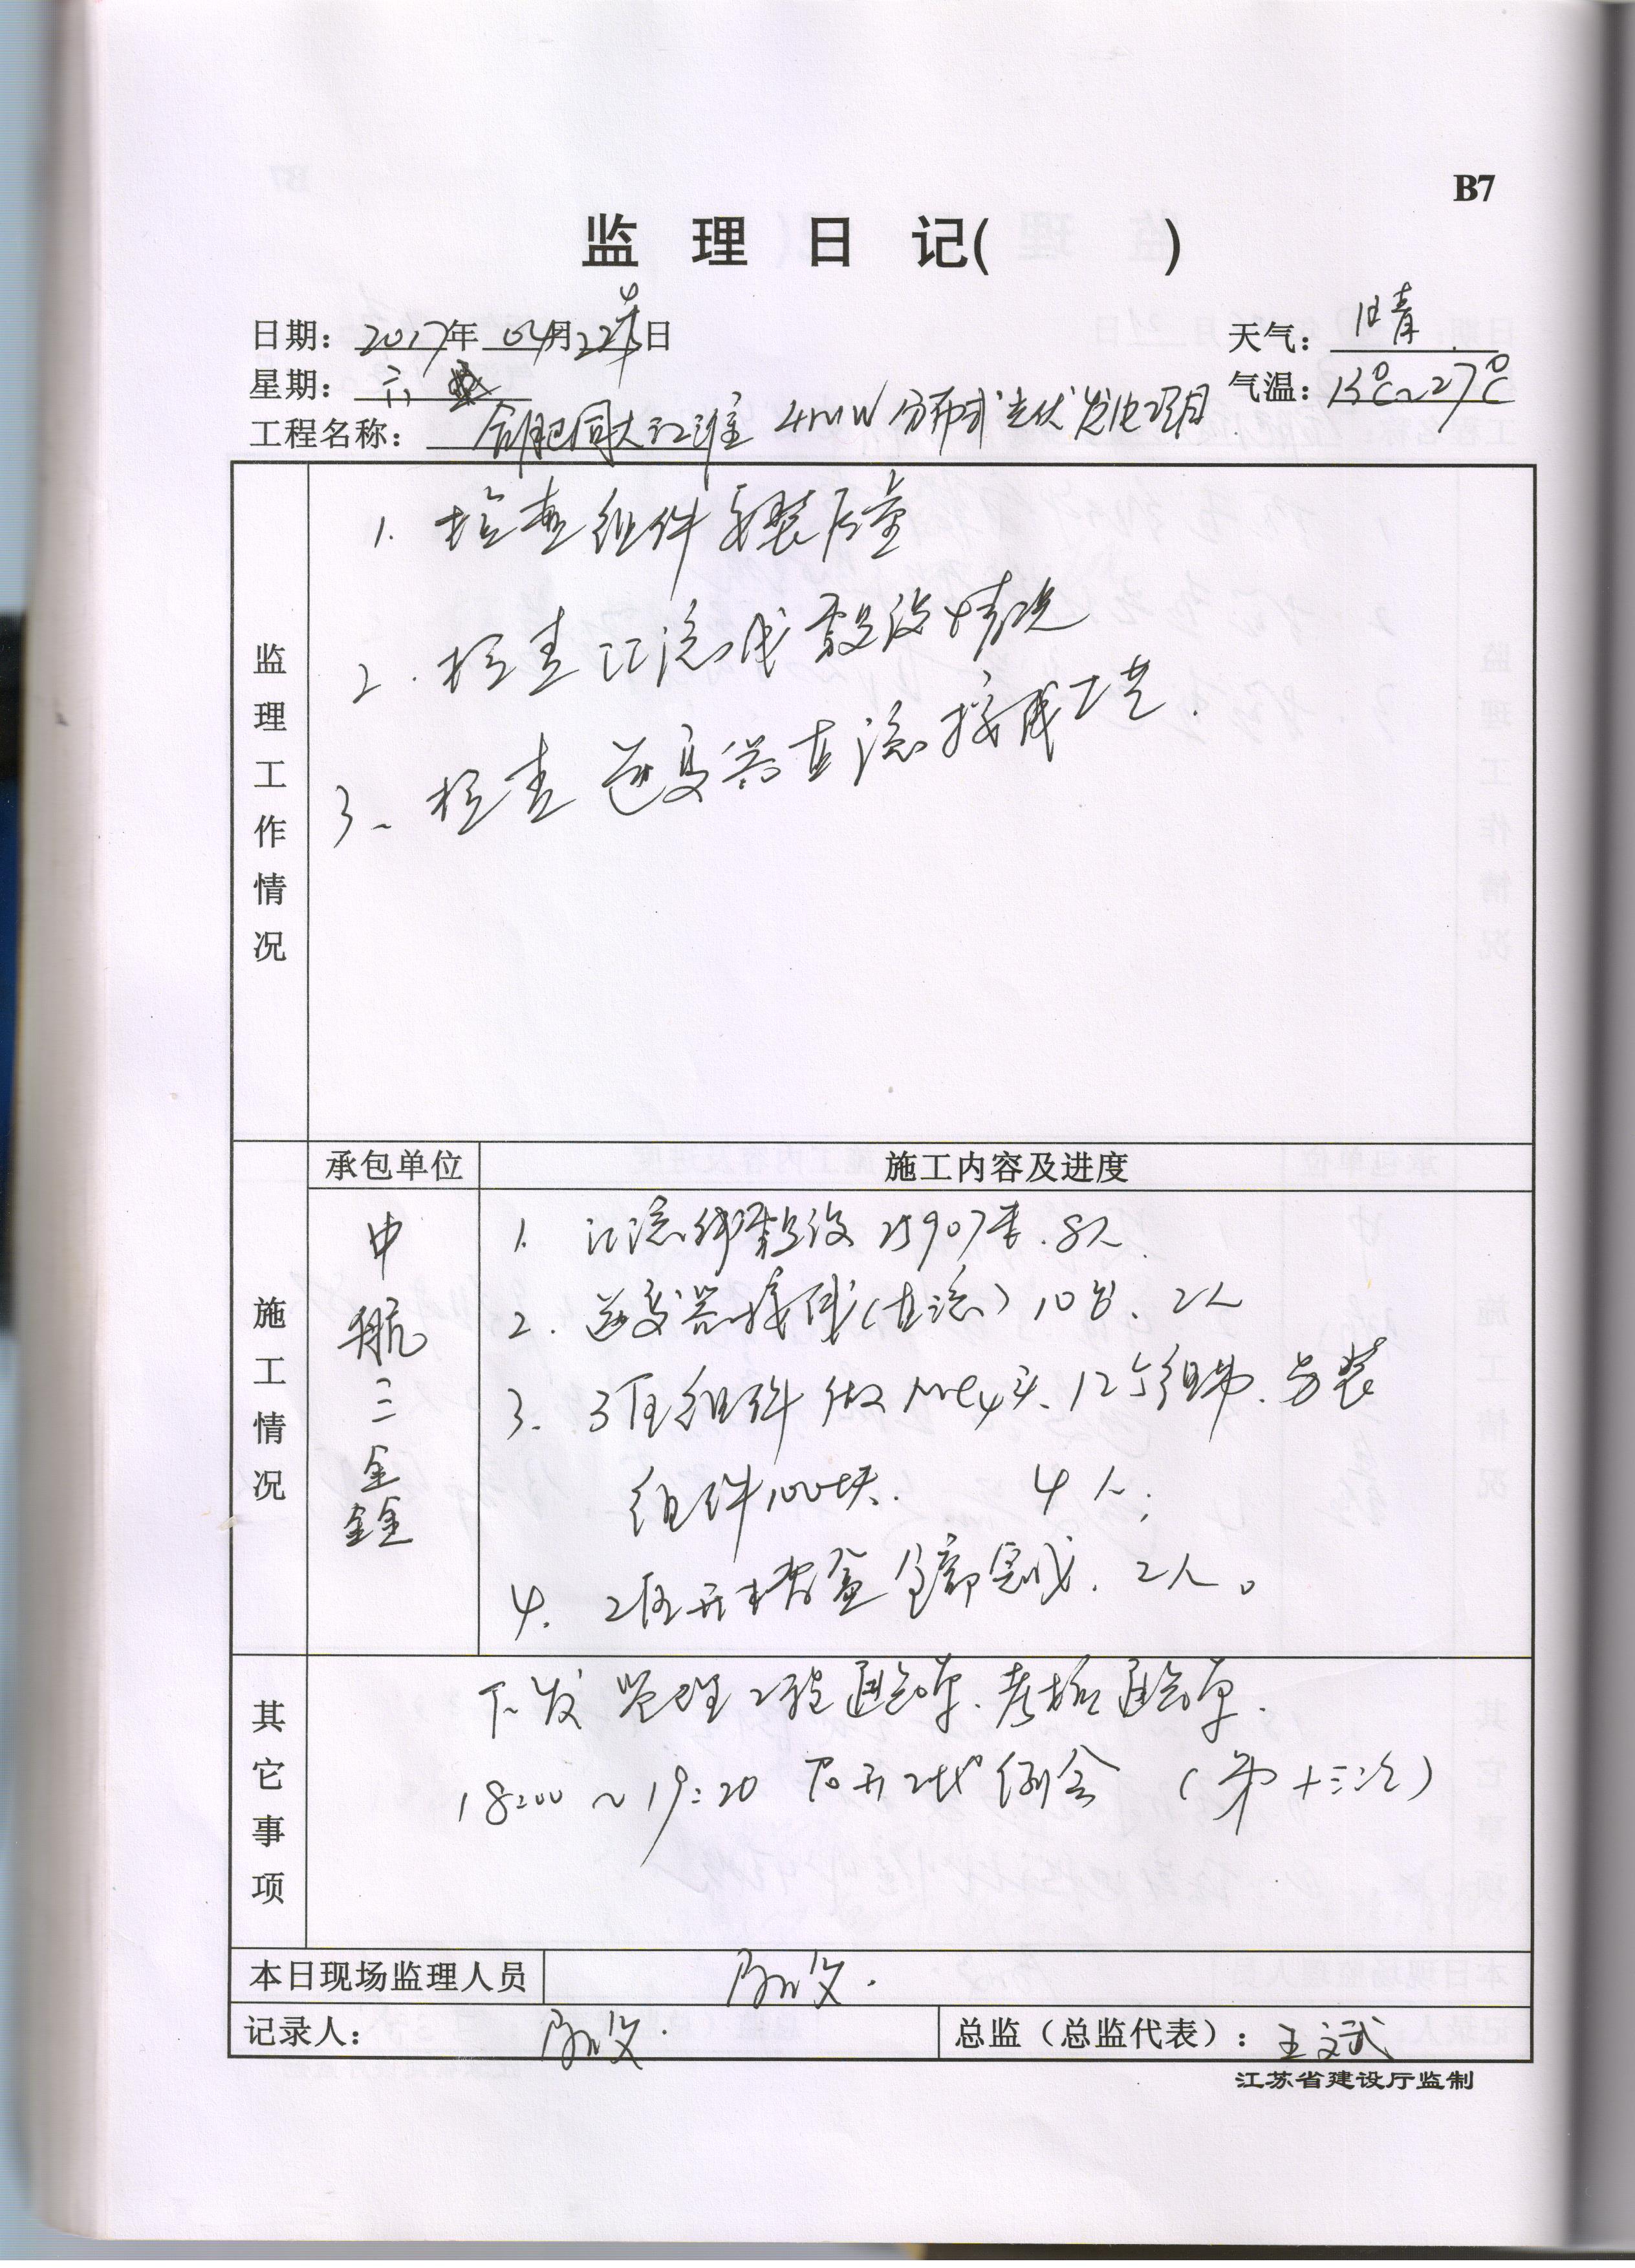 B7
监 理 日 记( )
日期：2017年 04月22日
天气：晴
星期：六
气温：13℃~27℃
工程名称：合肥同大江淮 4MW分布式光伏发电项目
监理工作情况
1. 检查组件安装质量
2. 检查汇流线敷设情况
3、检查逆变器直流接线工艺.
承包单位
施工内容及进度
施工情况
中航三鑫
1. 汇流线敷设25907米.8人.
2. 逆变器接线(直流)10台、2人
3. 3#组件做MC4头、12个组串、安装
组件100块. 4人;
4. 盖全部完成. 2人。
其它事项
下发监理工程通知单.考核通知单.
18:00~19:20 召开工地例会 (第十三次)
本日现场监理人员
记录人：
总监（总监代表）：王文武
江苏省建设厅监制